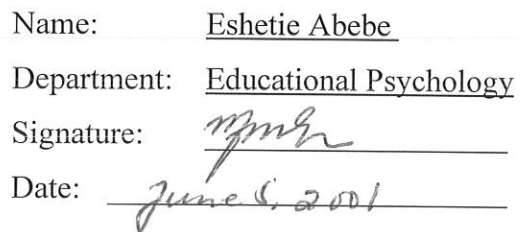 Name: Eshetie Abebe
Department: Educational Psychology
Signature:
Date: June 5, 2001